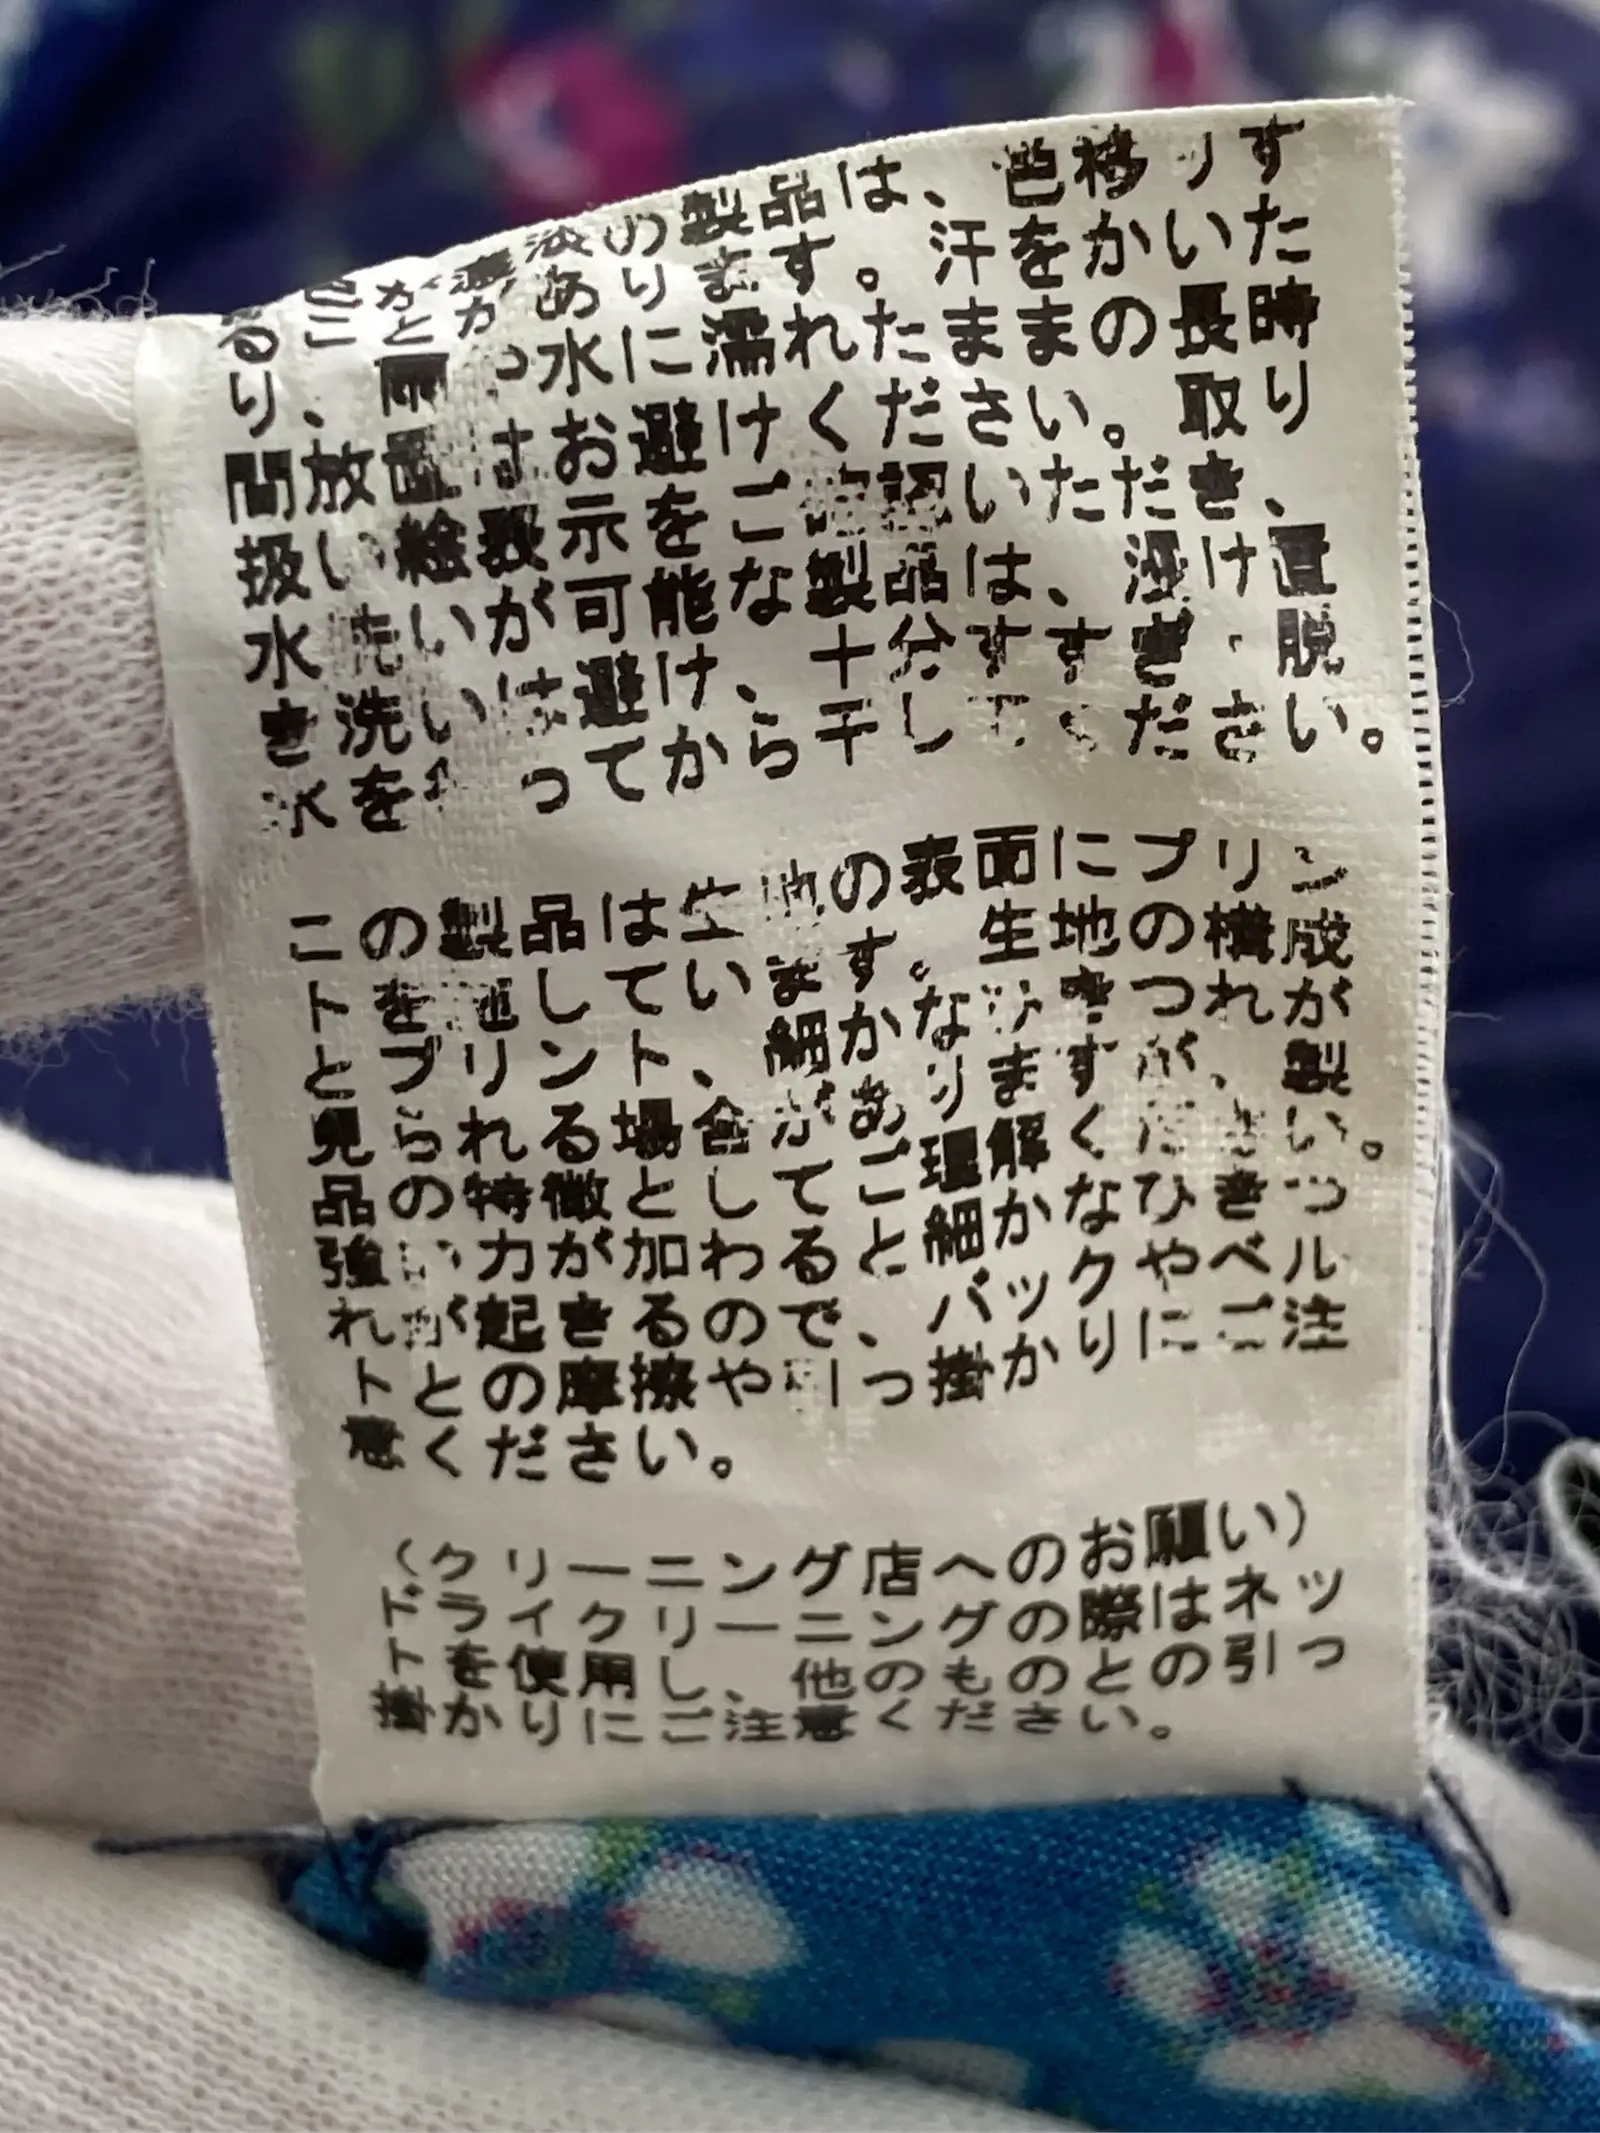 色が濃淡の製品は、色移りす
ることがあります。汗をかいた
り、雨や水に濡れたままの長時
間放置はお避けください。取り
扱い絵表示をご確認いただき、
水洗いが可能な製品は、浸け置
き洗いは避け、十分すすぎ・脱
水を行ってから干してください。
この製品は生地の表面にプリン
トを施しています。生地の構成
とプリント、細かなひきつれが
見られる場合がありますが、製
品の特徴としてご理解ください。
強い力が加わると細かなひきつ
れが起きるので、バックやベル
トとの摩擦や引っ掛かりにご注
意ください。
(クリーニング店へのお願い)
ドライクリーニングの際はネッ
トを使用し、他のものとの引っ
掛かりにご注意ください。